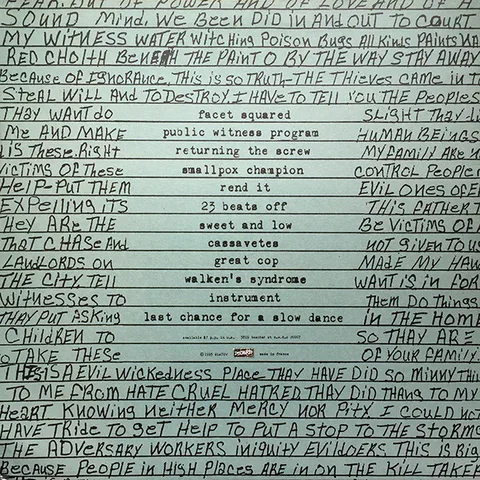 FEAR. BUT OF POWER AND OF LOVE AND OF A
SOUND MIND. WE BEEN DID IN AND OUT TO COURT
MY WITNESS WATER WITCHING POISON BUGS ALL KINDS PAINTS
RED CHOLTH BENEATH THE PAINT O BY THE WAY STAY AWAY
BECAUSE OF IGNORANCE, THIS IS SO TRUTH-THE THIEVES CAME IN
STEAL WILL AND TO DESTROY. I HAVE TO TELL YOU THE PEOPLES
THAY WANT DO facet squared SLIGHT THAY
ME AND MAKE public witness program HUMAN BEINGS
IS THESE. RIGHT returning the screw MY FAMILY ARE
VICTIMS OF THESE smallpox champion CONTROL PEOPLE
HELP-PUT THEM rend it EVIL ONES OF
EXPELLING ITS 23 beats off THIS FATHER
HEY ARE THE sweet and low BE VICTIMS OF
THAT CHASE AND cassavetes NOT GIVEN TO
LANDLORDS ON great cop MADE MY
THE CITY. TELL walken's syndrome WANT IS IN FOR
WITNESSES TO instrument THEM DO THINGS
THAY PUT ASKING last chance for a slow dance IN THE HOME
CHILDREN TO SO THAY ARE
TAKE THESE DISCHORD made in france OF YOUR FAMILY.
THIS IS A EVIL WICKEDNESS PLACE THAY HAVE DID SO MINNY
TO ME FROM HATE CRUEL HATRED THAY DID THANG TO MY
HEART KNOWING NEITHER MERCY NOR PITY I COULD NOT
HAVE TRIDE TO GET HELP TO PUT A STOP TO THE STORMS
THE ADVERSARY WORKERS INIQUITY EVILDOERS THIS IS
BECAUSE PEOPLE IN HIGH PLACES ARE IN ON THE KILL TAKER